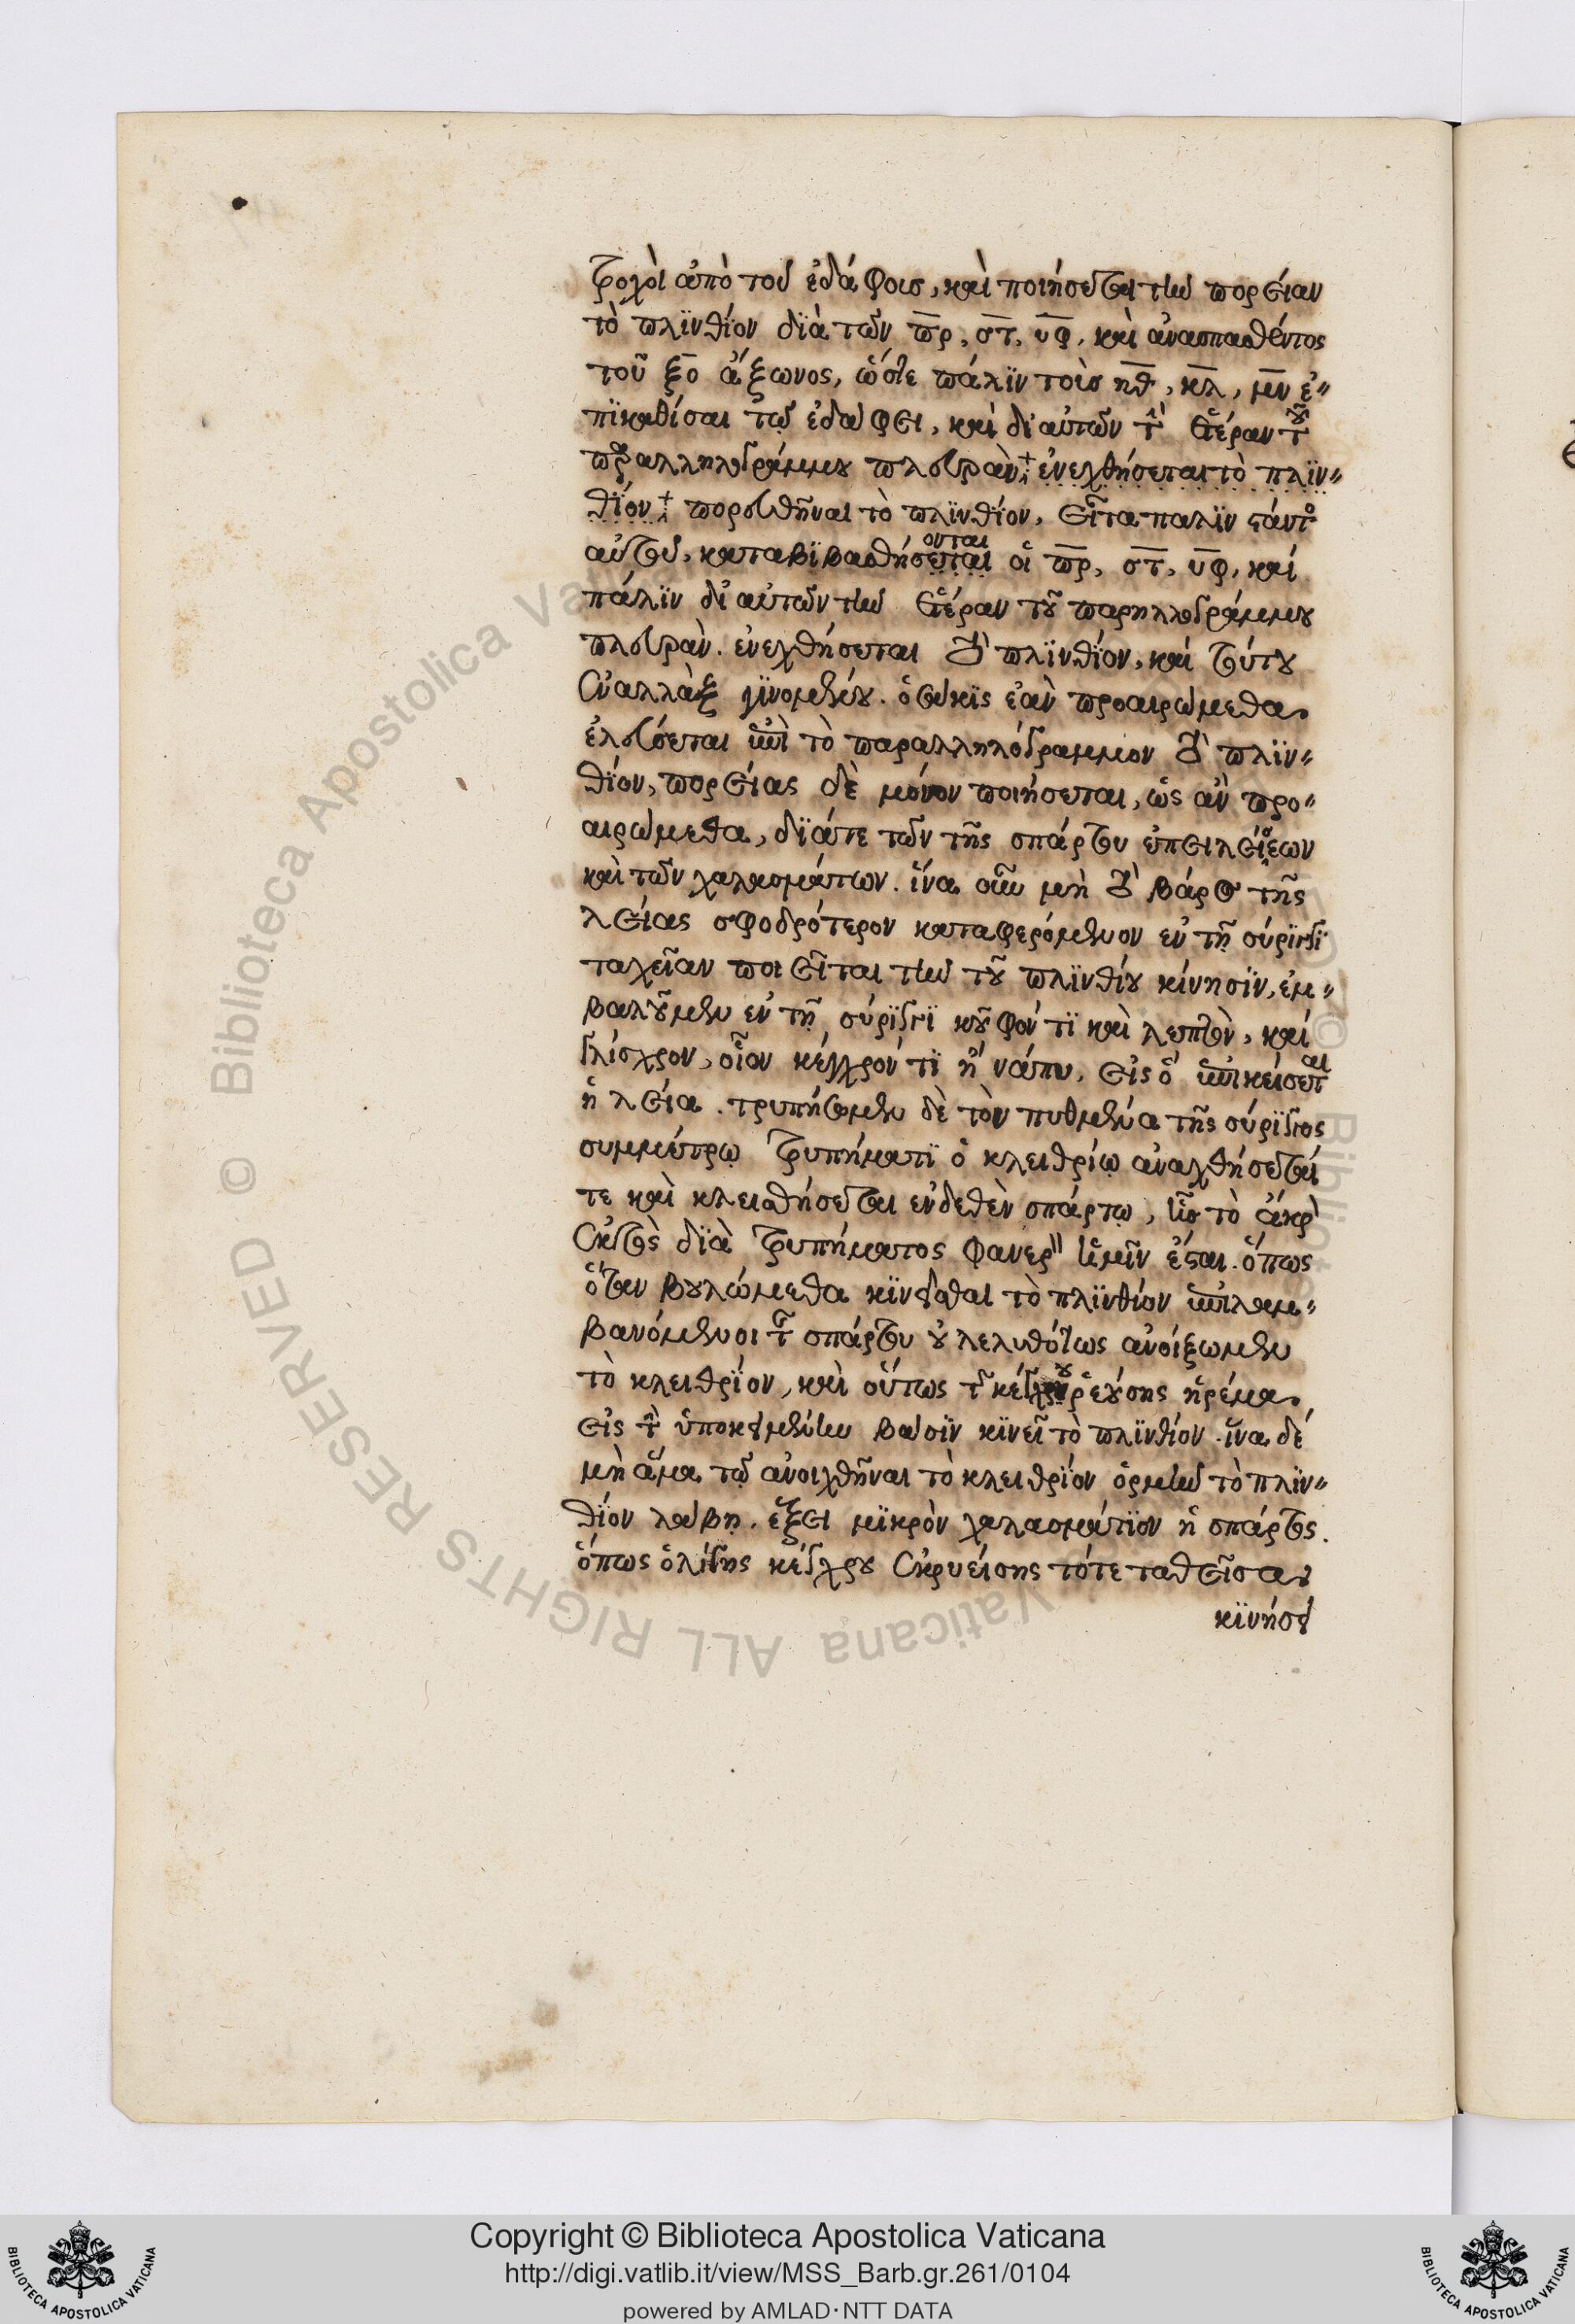 τροχοὶ ἀπὸ τοῦ ἐδάφους, καὶ ποιήσεται τὴν πορείαν
τὸ πλϊνθίον δϊὰ τῶν πρ, στ, υφ, καὶ ἀνασπασθέντος
τοῦ ξο ἄξωνος, ὥστε πάλϊν τοὶς ηθ, κλ, μν ἐ〃
πϊκαθίσαι τῷ ἐδάφει, καὶ δι' αὐτῶν τὴν ἑτέραν τοῦ
παραλληλογράμμου πλευρὰν + ἐνεχθήσεται τὸ πλϊν〃
θϊον + πορευθῆναι τὸ πλϊνθϊον, εἶτα παλϊν
αὐτοῦ, καταβϊβασθήσεται ονται οἱ πρ, στ, υφ, καί
πάλϊν δι' αὐτῶν τὴν ἑτέραν τοῦ παρηλλογράμμου
πλευρὰν. ἐνεχθήσεται τὸ πλϊνθϊον, καὶ τούτου
ἐναλλὰξ γϊνομένου. ὁσάκϊς ἐὰν προαιρώμεθα,
ἐλεύσεται ἐπὶ τὸ παραλληλόγραμμον τὸ πλϊν〃
θϊον, πορείας δὲ μόνον ποιήσεται, ὡς ἂν προ〃
αιρώμεθα, δϊά τε τῶν τῆς σπάρτου ἐπειλείξεων
καὶ τῶν χαλασμάτων. ἵνα οὖν μὴ τὸ βάρος τῆς
λείας σφοδρότερον καταφερόμενον ἐν τῇ σύριγγϊ
ταχεῖαν ποιεῖται τὴν τοῦ πλϊνθίου κίνησϊν, ἐμ〃
βαλοῦμεν ἐν τῇ σύρϊγγϊ κοῦφόν τϊ καὶ λεπτὸν, καί
γλίσχρον, οἷον κέγχρόν τϊ ἢ νάπυ, εἰς ὃ ἐπικείσεται
ἡ λεία. τρυπήσωμεν δὲ τὸν πυθμένα τῆς σύρϊγγος
συμμέτρῳ τρυπήματϊ ὃ κλειθρίῳ ἀναχθήσεταί
τε καὶ κλεισθήσεται ἐνδεθὲν σπάρτῳ, ἧς τὸ ἄκρον
ἐκτὸς δϊὰ τρυπήματος φανερὸν ἡμῖν ἔσται. ὅπως
ὅταν βουλώμεθα κϊνεῖσθαι τὸ πλϊνθίον ἐπιλαμ〃
βανόμενοι τῆς σπάρτου οὐ λεληθότως ἀνοίξωμεν
τὸ κλειθρϊον, καὶ οὕτως τῆς κέγχρου ῥεούσης ἠρέμα,
εἰς τὴν ὑποκειμένην βάσϊν κϊνεῖ τὸ πλϊνθίον. ἵνα δέ
μὴ ἅμα τῷ ἀνοιχθῆναι τὸ κλειθρϊον ὁρμὴν τὸ πλϊν〃
θϊον λάβῃ. ἕξει μϊκρὸν χαλασμάτϊον ἡ σπάρτος.
ὅπως ὀλίγης κέγχρου ἐκρυείσης τότε ταθεῖσα,
κϊνήσει
Copyright © Biblioteca Apostolica Vaticana
http://digi.vatlib.it/view/MSS_Barb.gr.261/0104
powered by AMLAD·NTT DATA
BIBLIOTECA APOSTOLICA VATICANA
BIBLIOTECA APOSTOLICA VATICANA
© Biblioteca Apostolica Vaticana ALL RIGHTS RESERVED